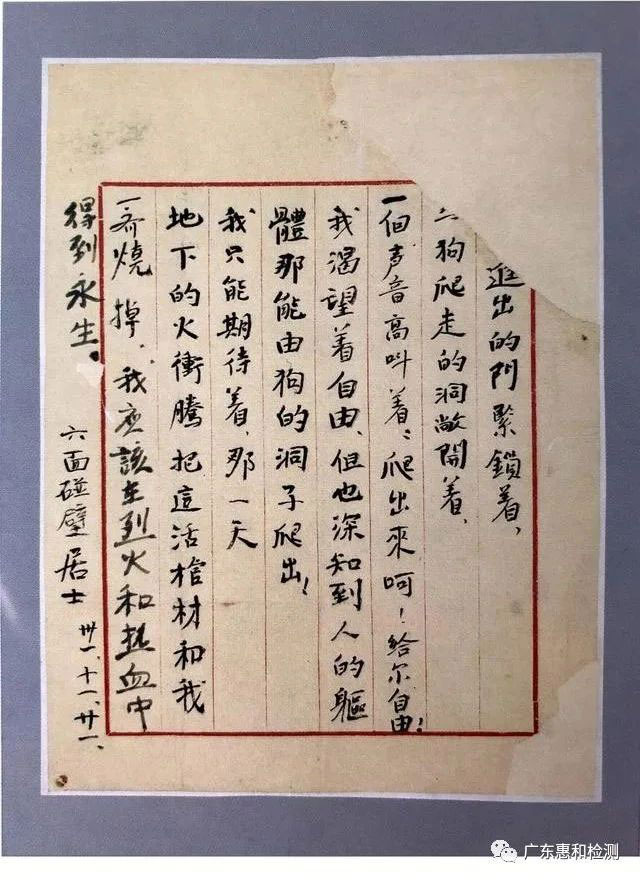 進出的門緊鎖着、
狗爬走的洞敞開着、
一個声音高叫着：爬出來呵！給尔自由！
我渴望着自由、但也深知到人的軀
體那能由狗的洞子爬出！
我只能期待着、那一天
地下的火衝騰把這活棺材和我
一齊燒掉、我应該在烈火和热血中
得到永生。
六面碰壁居士 卅一、十一、廿一、
广东惠和检测